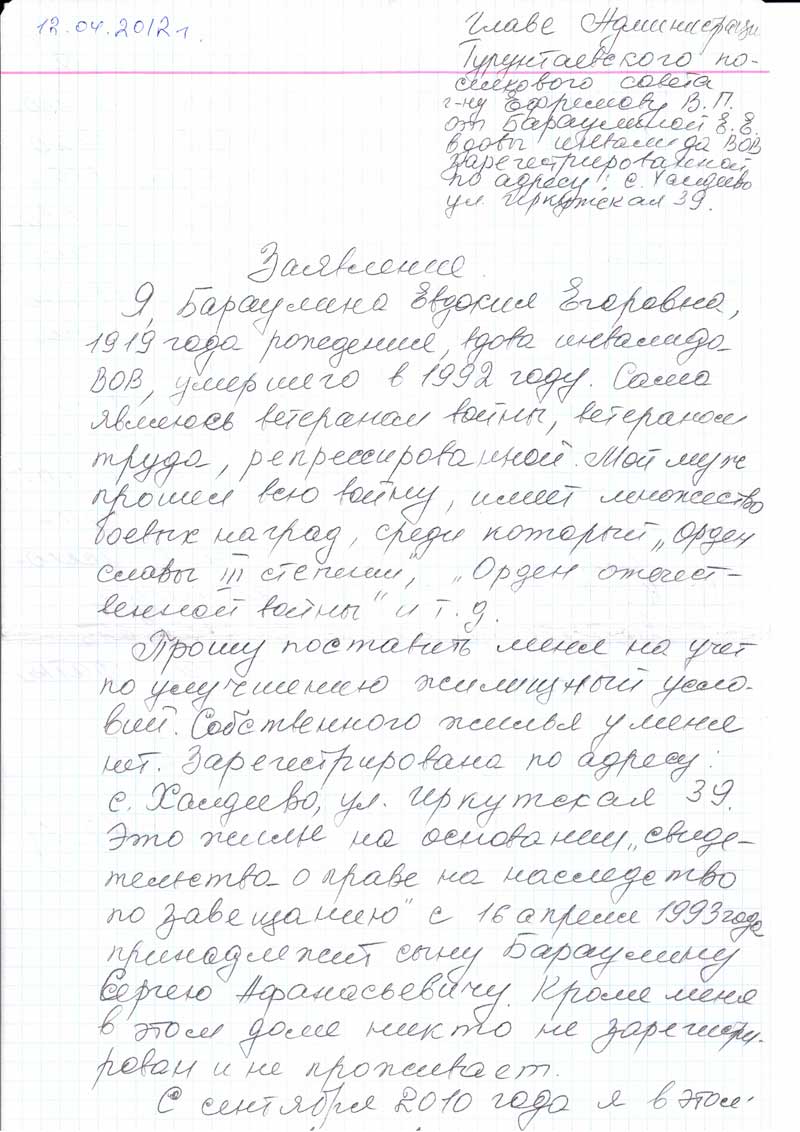 12.04.2012 г.
Главе Администраци
Турунтаевского по-
селкового совета
г-ну Ефремову В.П.
от Бараулиной Е.Е.
вдовы инвалида ВОВ
зарегестрированной
по адресу: с. Халдеево
ул. Иркутская 39.
Заявление
Я, Бараулина Евдокия Егоровна,
1919 года рождения, вдова инвалида
ВОВ, умершего в 1992 году. Сама
являюсь ветераном войны, ветераном
труда, репрессированной. Мой муж
прошел всю войну, имеет множество
боевых наград, среди который „Орден
славы III степени", „Орден отечест-
венной войны" и т.д.
Прошу поставить меня на учет
по улучшению жилищный усло-
вий. Собственного жилья у меня
нет. Зарегестрирована по адресу:
с. Халдеево, ул. Иркутская 39.
Это жилье на основании „свиде-
тельства о праве на наследство
по завещанию" с 16 апреля 1993 года
принадлежит сыну Бараулину
Сергею Афанасьевичу. Кроме меня
в этом доме никто не зарегистри-
рован и не проживает.
С сентября 2010 года я в этом